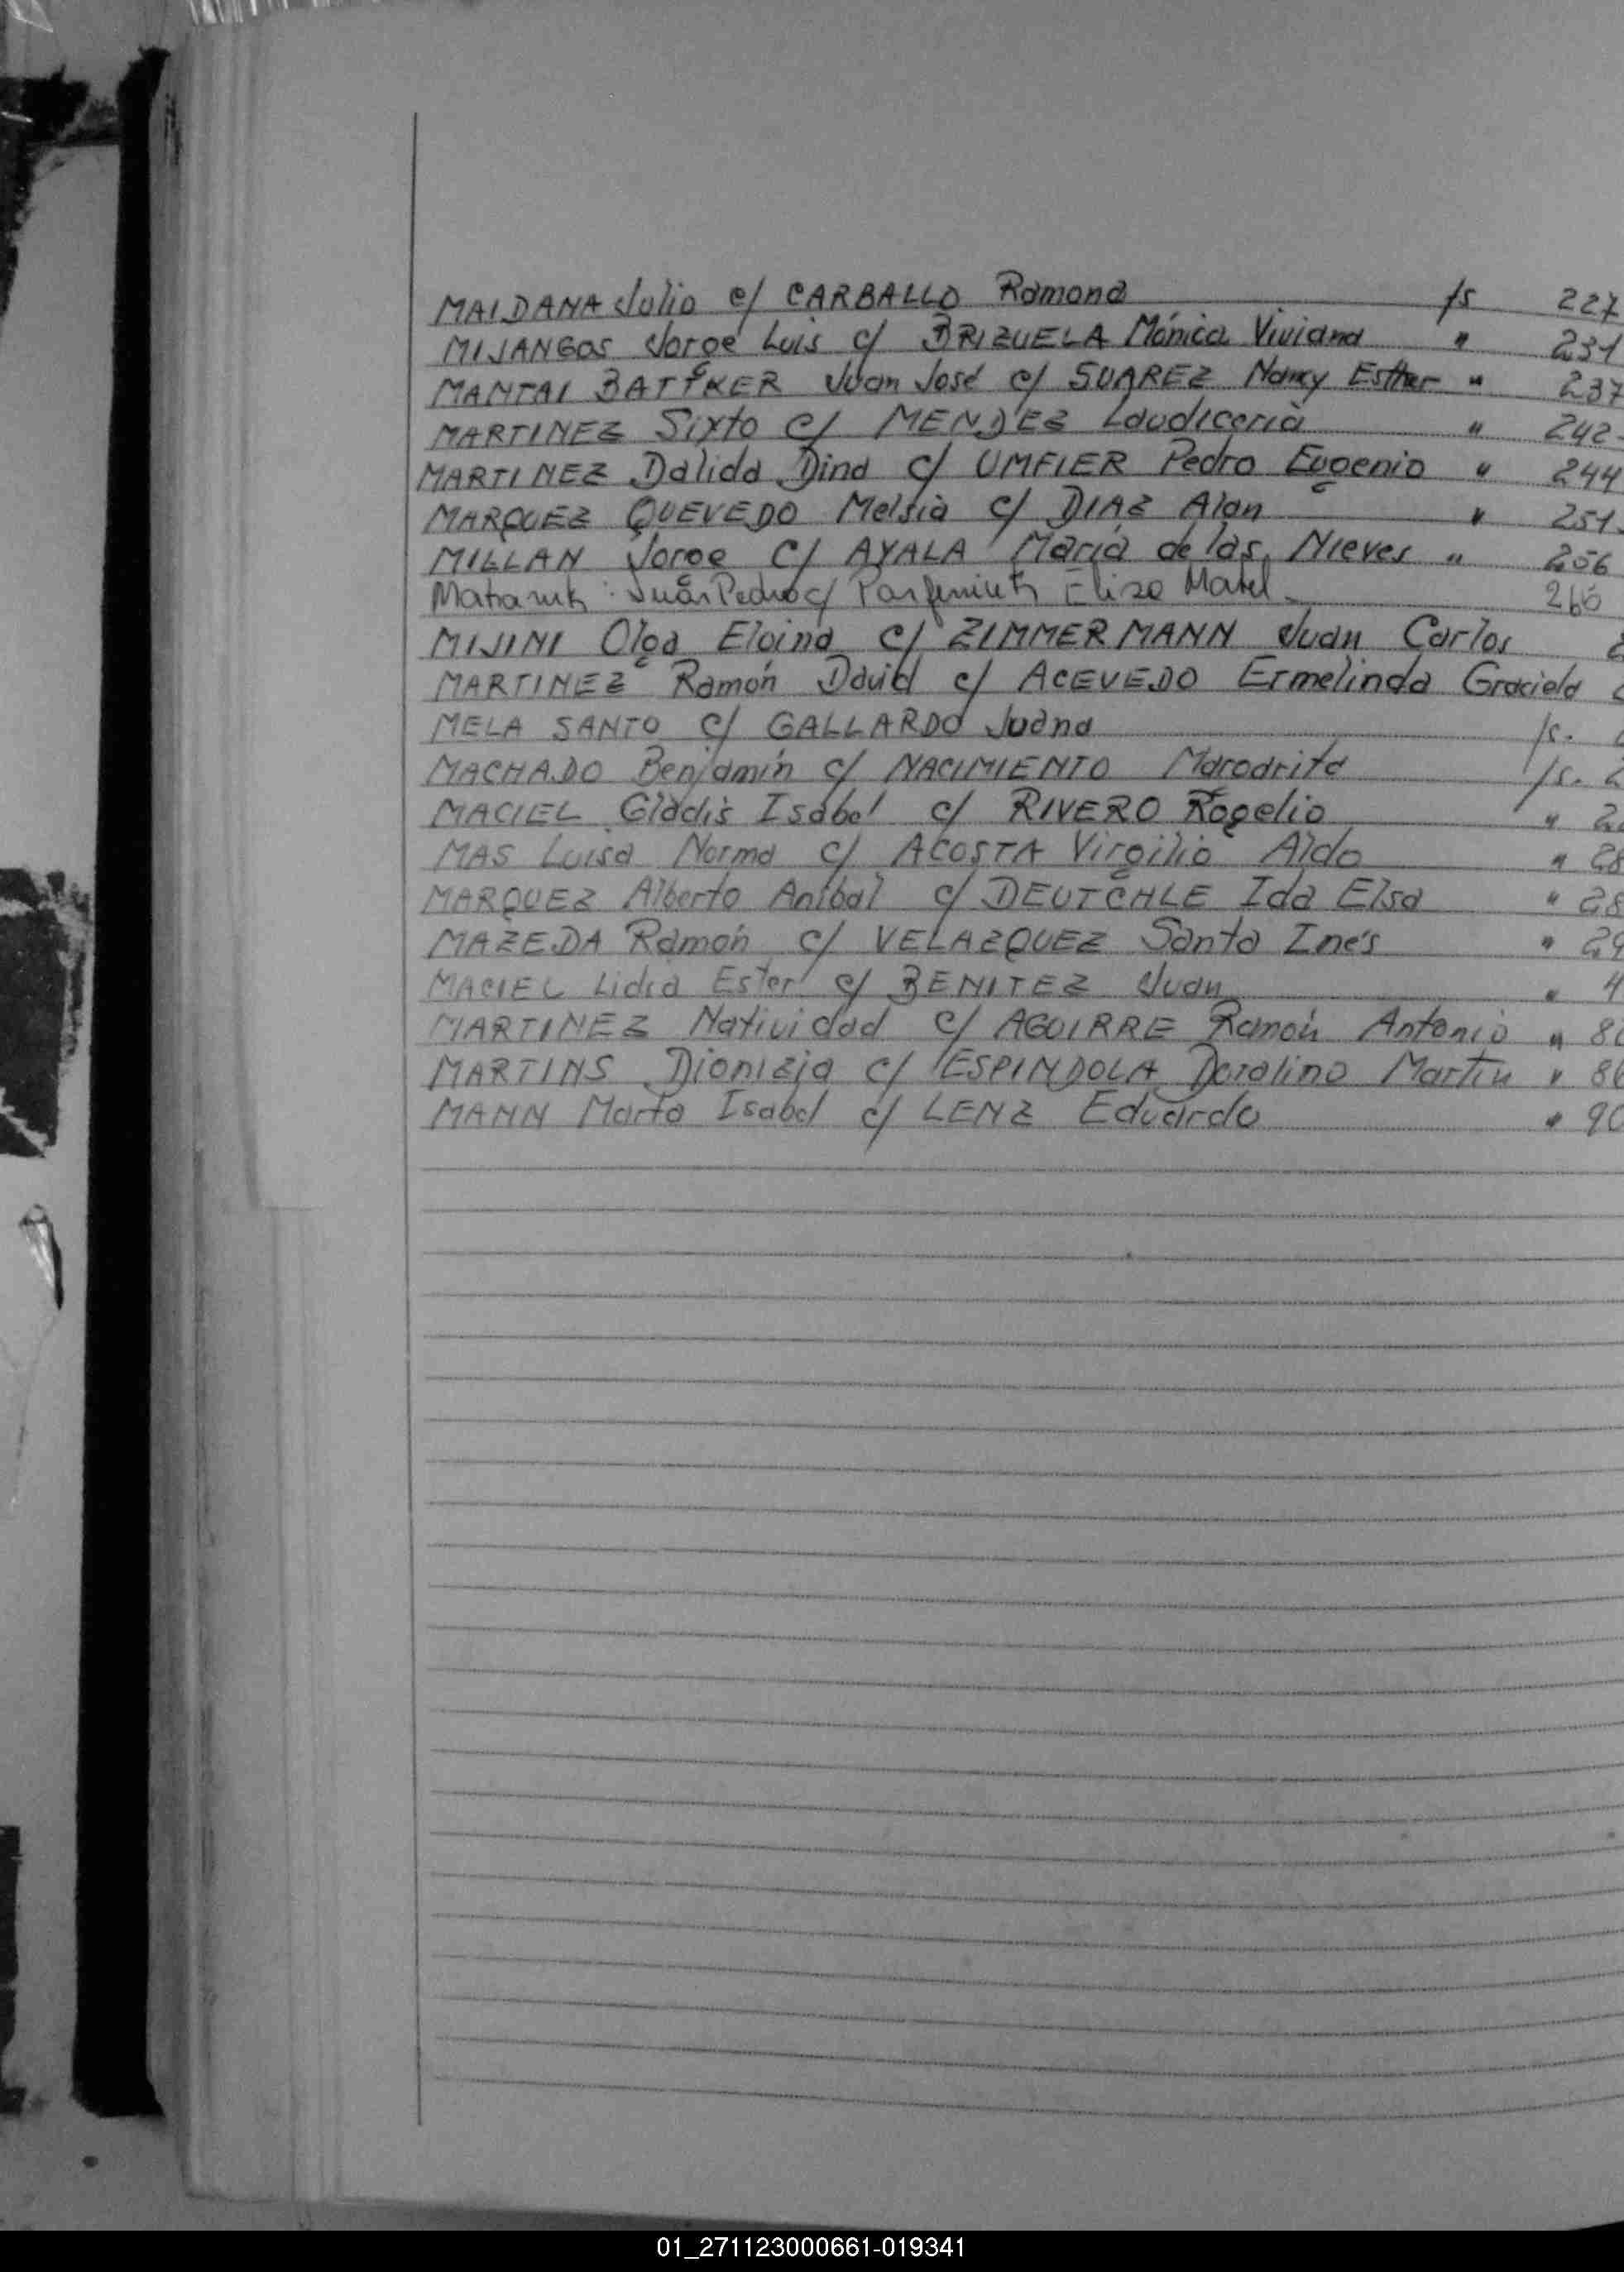 MAIDANA Julio c/ CARBALLO Ramona fs 227
MIJANGOS Jorge Luis c/ BRIZUELA Mónica Viviana " 231
MANTAI BATTKER Juan José c/ SUAREZ Nancy Esther " 237
MARTINEZ Sixto c/ MENDEZ Laudiceria " 242
MARTINEZ Dalida Dina c/ UMFIER Pedro Eugenio " 244
MARQUEZ QUEVEDO Melsia c/ DIAZ Alan " 251
MILLAN Jorge c/ AYALA María de las Nieves " 256
Juan Pedro c/ Elisa Mabel
MIJINI Olga Eloina c/ ZIMMERMANN Juan Carlos
MARTINEZ Ramón David c/ ACEVEDO Ermelinda Graciela
MELA SANTO c/ GALLARDO Juana fs.
MACHADO Benjamín c/ NACIMIENTO Margarita fs. 2
MACIEL Gladis Isabel c/ RIVERO Rogelio " 2
MAS Luisa Norma c/ ACOSTA Virgilio Aldo " 28
MARQUEZ Alberto Anibal c/ DEUTCHLE Ida Elsa " 28
MAZEDA Ramón c/ VELAZQUEZ Santa Inés " 29
MACIEL Lidia Ester c/ BENITEZ Juan " 4
MARTINEZ Natividad c/ AGUIRRE Ramón Antonio " 8
MARTINS Dionizia c/ ESPINDOLA Doralino Martin " 8
MANN Marta Isabel c/ LENZ Eduardo " 90
01_271123000661-019341